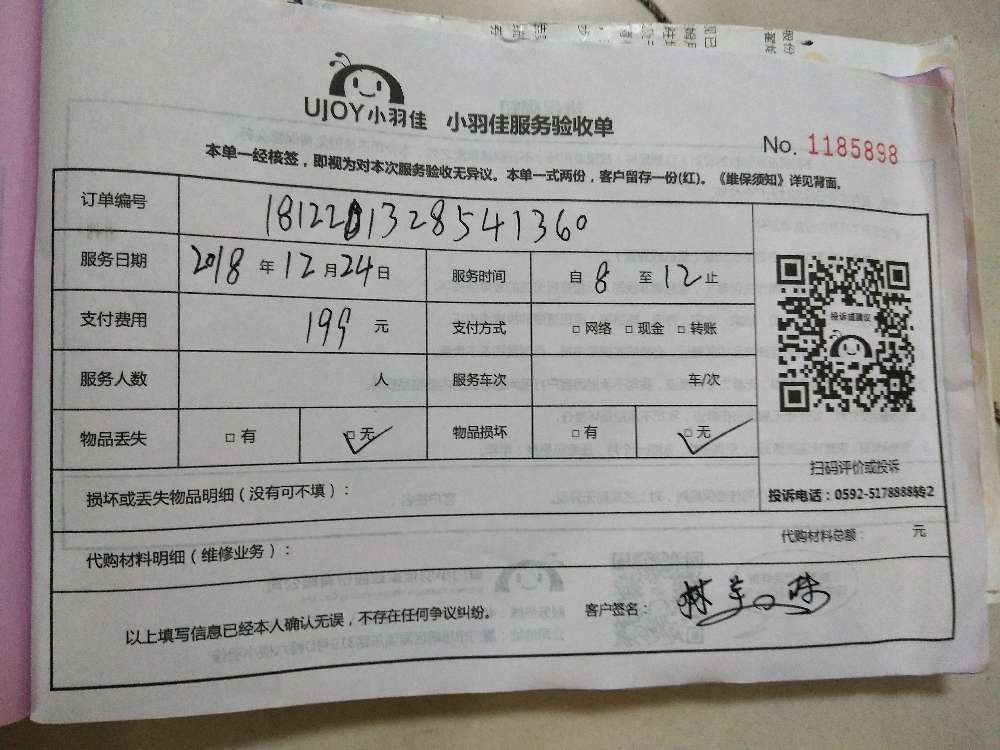 UJOY小羽佳 小羽佳服务验收单
No. 1185898
本单一经核签，即视为对本次服务验收无异议。本单一式两份，客户留存一份(红)。《维保须知》详见背面。
订单编号 1812201328541360
服务日期 2018 年 12 月 24 日 服务时间 自 8 至 12 止
支付费用 199 元 支付方式 □ 网络 □ 现金 □ 转账
投诉或建议
服务人数 人 服务车次 车/次
物品丢失 □ 有 □ 无 物品损坏 □ 有 □ 无
扫码评价或投诉
损坏或丢失物品明细（没有可不填）：
投诉电话：0592-5178888转2
代购材料明细（维修业务）：
代购材料总额： 元
以上填写信息已经本人确认无误，不存在任何争议纠纷。
客户签名：